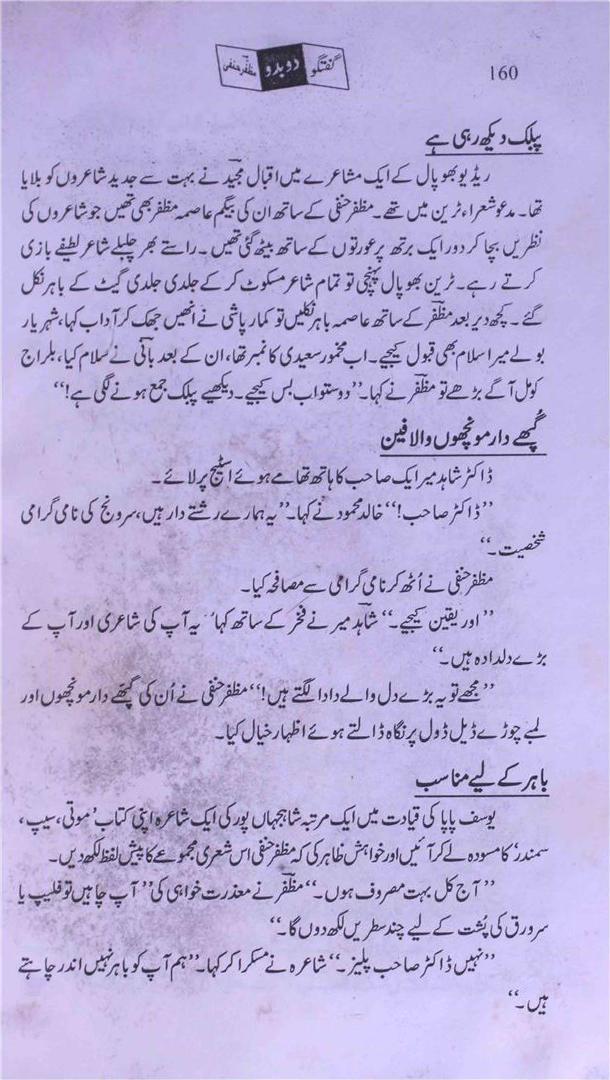 160
گفتگو دوبدو مظفر حنفی
پبلک دیکھ رہی ہے
ریڈیو بھوپال کے ایک مشاعرے میں اقبال مجید نے بہت سے جدید شاعروں کو بلایا
تھا۔ مدعو شعراء ٹرین میں تھے۔ مظفر حنفی کے ساتھ ان کی بیگم عاصمہ مظفر بھی تھیں جو شاعروں کی
نظریں بچا کر دور ایک برتھ پر عورتوں کے ساتھ بیٹھ گئی تھیں۔ راستے بھر چلبلے شاعر لطیفے بازی
کرتے رہے۔ ٹرین بھوپال پہنچی تو تمام شاعر مسکوٹ کر کے جلدی جلدی گیٹ کے باہر نکل
گئے۔ کچھ دیر بعد مظفرؔ کے ساتھ عاصمہ باہر نکلیں تو کمار پاشی نے انھیں جھک کر آداب کہا، شہریار
بولے میرا سلام بھی قبول کیجیے۔ اب مخمور سعیدی کا نمبر تھا، ان کے بعد بانیؔ نے سلام کیا، بلراج
کومل آگے بڑھے تو مظفرؔ نے کہا۔ ’’دوستو اب بس کیجیے۔ دیکھیے پبلک جمع ہونے لگی ہے!‘‘
گُپھے دار مونچھوں والا فین
ڈاکٹر شاہد میر ایک صاحب کا ہاتھ تھامے ہوئے اسٹیج پر لائے۔
’’ڈاکٹر صاحب!‘‘ خالد محمود نے کہا۔ ’’یہ ہمارے رشتے دار ہیں، سرونج کی نامی گرامی
شخصیت۔‘‘
مظفر حنفی نے اُٹھ کر نامی گرامی سے مصافحہ کیا۔
’’اور یقین کیجیے۔‘‘ شاہد میر نے فخر کے ساتھ کہا ’یہ آپ کی شاعری اور آپ کے
بڑے دلدادہ ہیں۔‘‘
’’مجھے تو یہ بڑے دل والے دادا لگتے ہیں!‘‘ مظفر حنفی نے اُن کی گپھے دار مونچھوں اور
لمبے چوڑے ڈیل ڈول پر نگاہ ڈالتے ہوئے اظہار خیال کیا۔
باہر کے لیے مناسب
یوسف پاپا کی قیادت میں ایک مرتبہ شاہجہاں پور کی ایک شاعرہ اپنی کتاب ’موتی، سیپ،
سمندر‘ کا مسودہ لے کر آئیں اور خواہش ظاہر کی کہ مظفر حنفی اس شعری مجموعے کا پیش لفظ لکھ دیں۔
’’آج کل بہت مصروف ہوں۔‘‘ مظفرؔ نے معذرت خواہی کی ’’آپ چاہیں تو فلیپ یا
سرورق کی پُشت کے لیے چند سطریں لکھ دوں گا۔‘‘
’’نہیں ڈاکٹر صاحب پلیز۔‘‘ شاعرہ نے مسکرا کر کہا۔ ’’ہم آپ کو باہر نہیں اندر چاہتے
ہیں۔‘‘